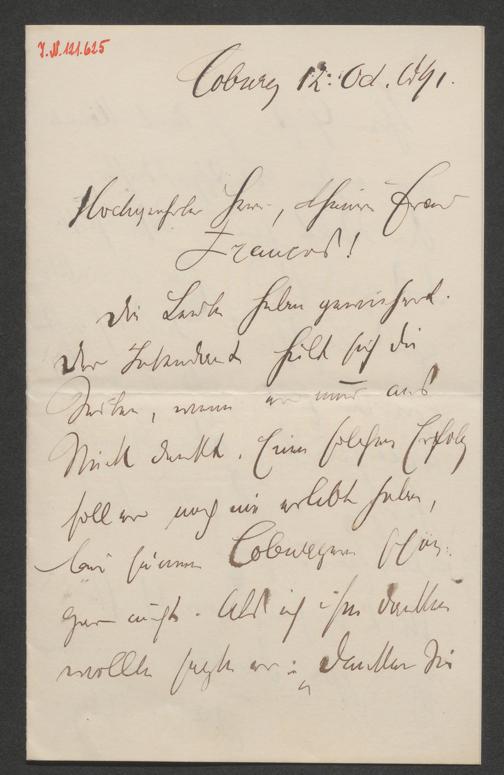 J.N. 121.625
Coburg 12. Oct. 1891.
Hochgeehrter Herr, theure Frau
Francos!
Die Leute haben gewiehert.
Der Intendant hält sich die
Seiten, wenn er nur ans
Stück denkt. Einen solchen Erfolg
soll er noch nie erlebt haben,
bei seinen Coburgern schon
gar nicht. Als ich ihm danken
wollte sagte er: „Danken Sie